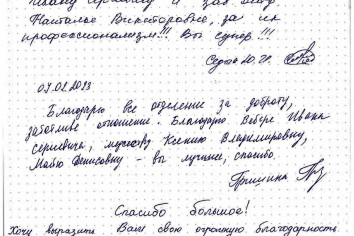 Наталье Викторовне, за их
профессионализм!!! Вы супер!!!
07.02.2013
Благодарю все отделение за доброту,
заботливое отношение. Благодарю Вебера Ивана
Сергеевича, Ксению Владимировну,
Майю Денисовну - вы лучшие, спасибо.
Гришина
Спасибо большое!
Хочу выразить Вам свою огромную благодарность